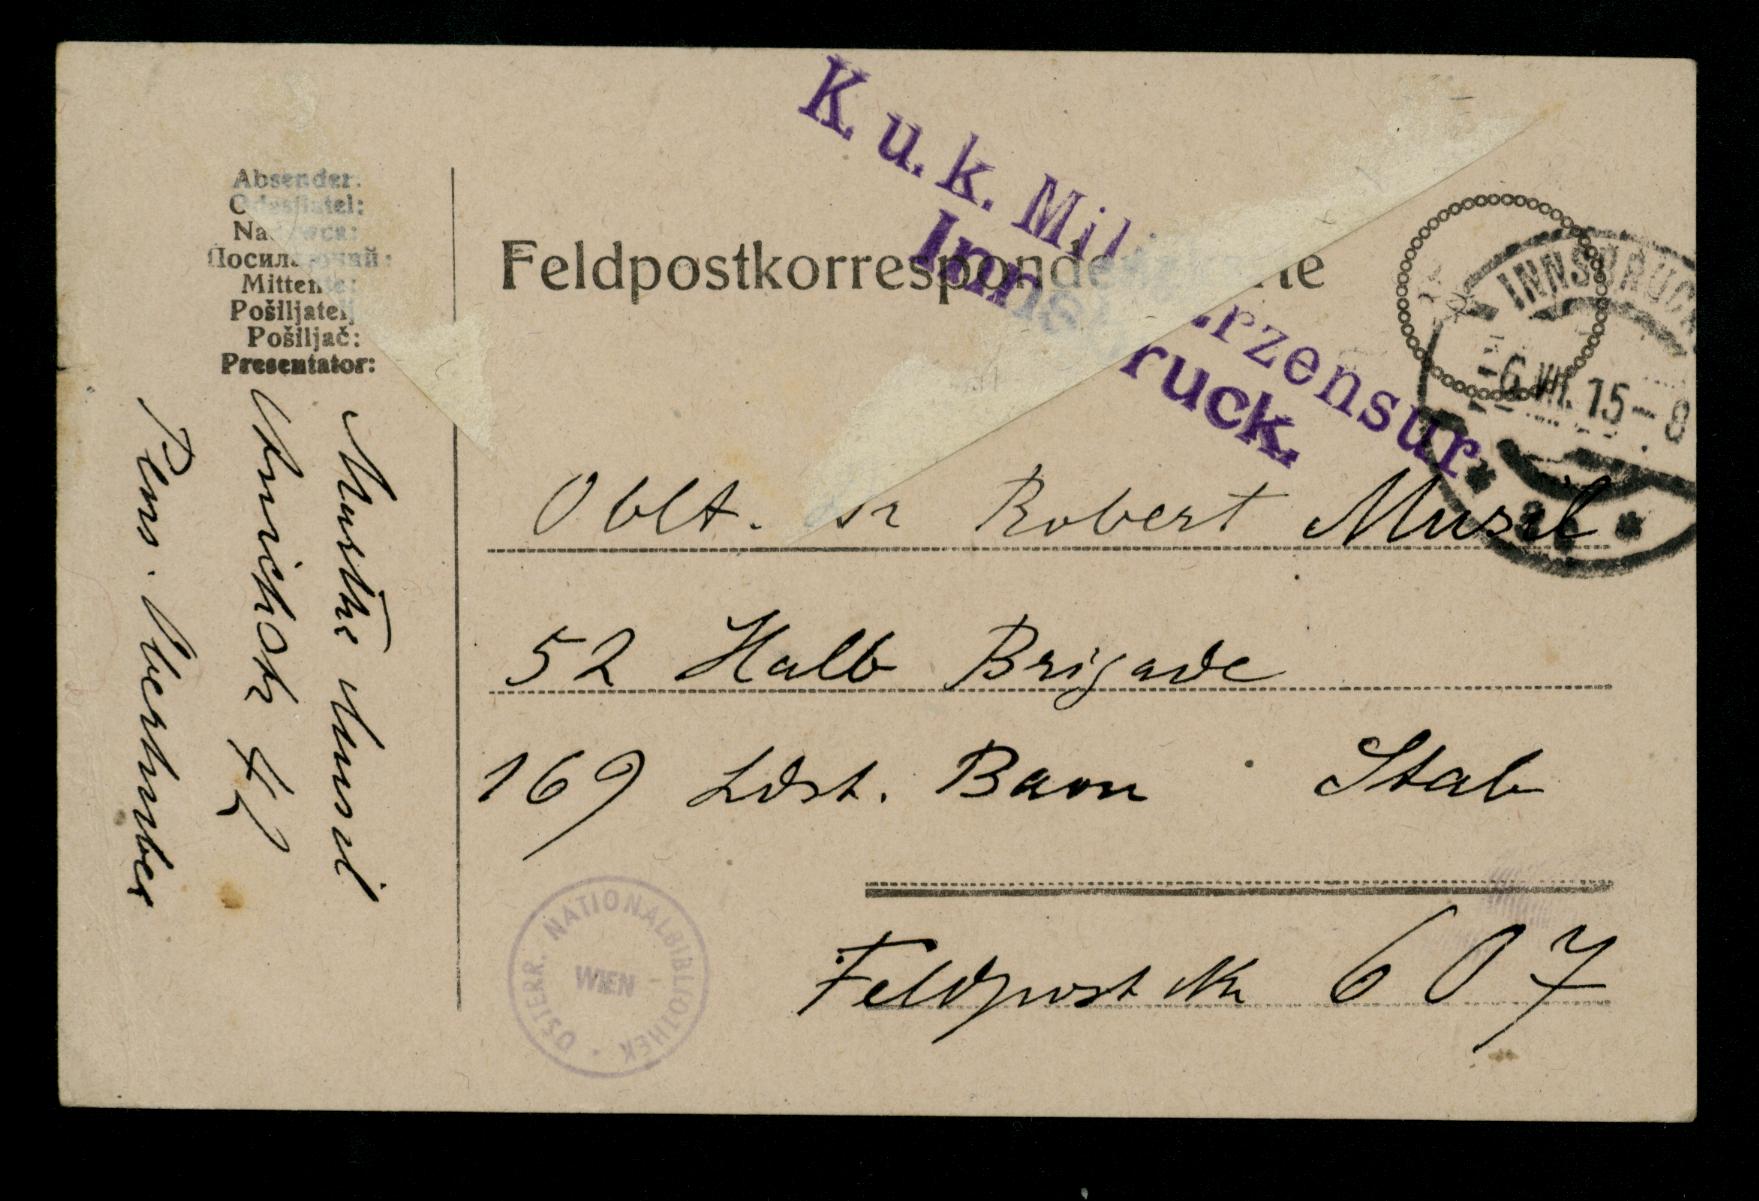 Absender:
Odesílatel:
Nadawca:
Посилаючий:
Mittente:
Pošiljatelj
Pošiljač:
Presentator:
Marthe Musil
Anichstr 42
Pens. Oberhuber
Feldpostkorrespondenzkarte
K. u. k. Militärzensur
Innsbruck.
INNSBRUCK
-6.VII.15-8
Oblt. Dr Robert Musil
52 Halb Brigade
169 Ldst. Baon Stab
Feldpost Nr 607
ÖSTERR. NATIONALBIBLIOTHEK
WIEN